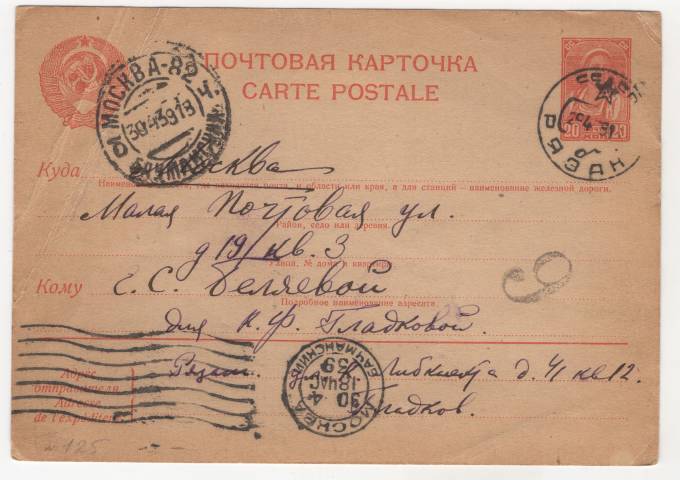 ПОЧТОВАЯ КАРТОЧКА
CARTE POSTALE
20 20
МОСКВА-82
30.4.39 18
29.4.39
РЯЗАН
Куда Москва
Наименование места, где находится почта, и области или края, а для станций – наименование железной дороги.
Малая Почтовая ул.
Район, село или деревня.
д 19/ кв. 3
Улица, № дома и квартиры.
Кому С. С. Беляевой
Подробное наименование адресата.
для К. Ф. Гладковой.
Адрес отправителя Рязань. Либкнехта д. 41 кв 12.
Adresse de l'expéditeur Гладков.
МОСКВА
30 4
18 ЧАС
39
БАУМАНСКИЙ
9
125